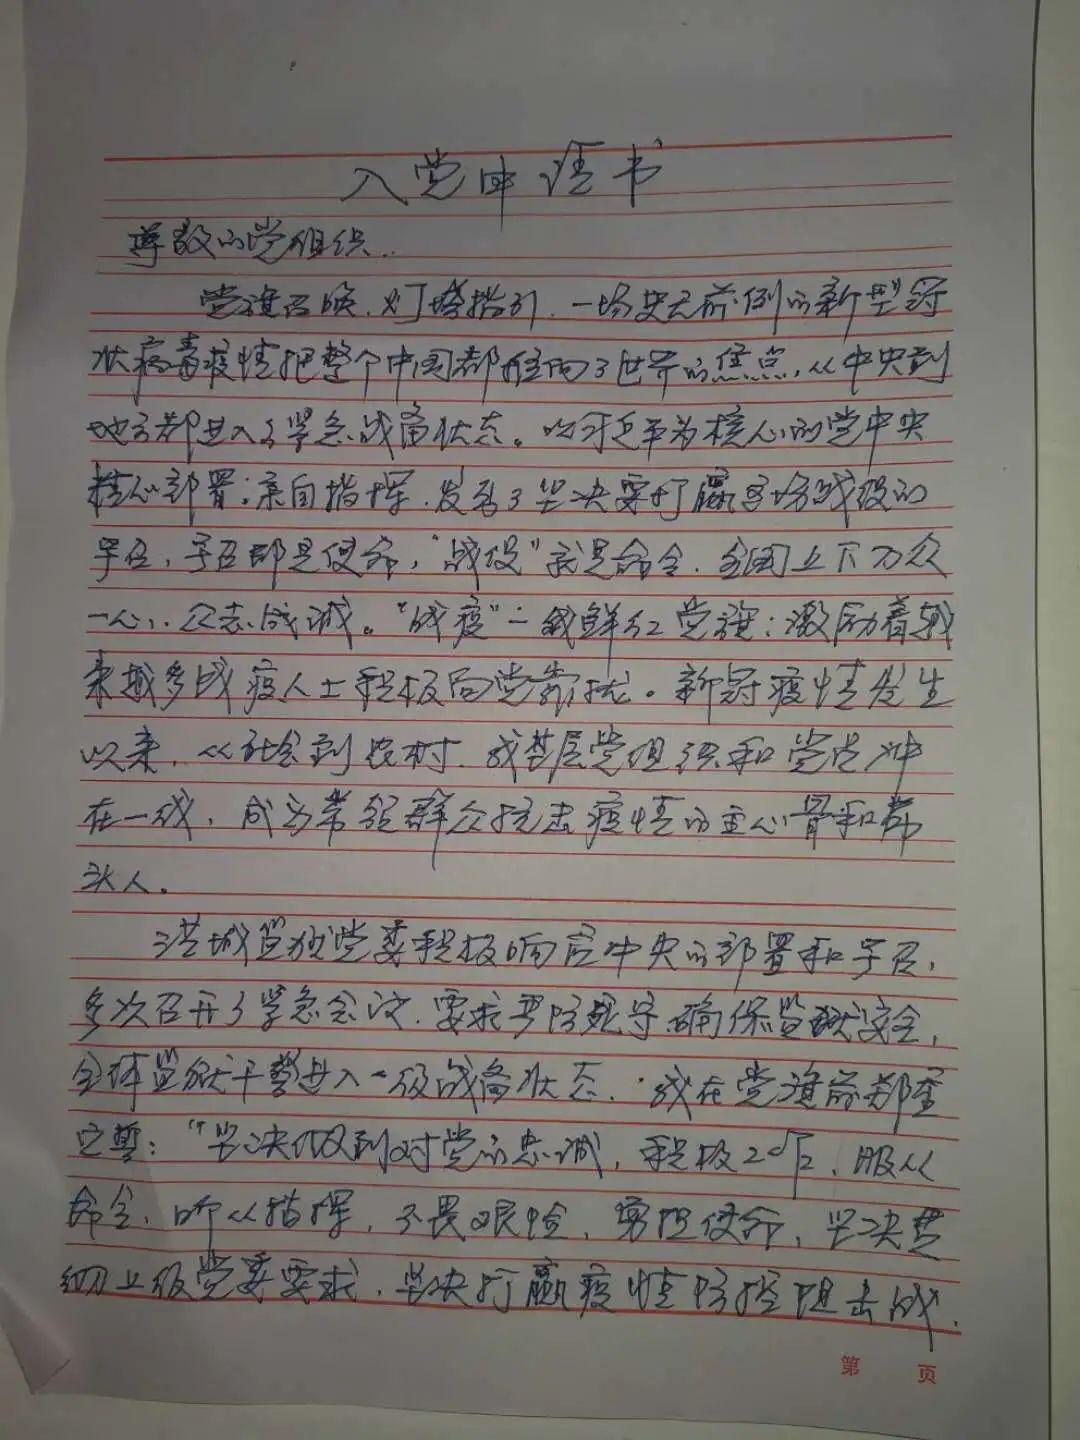 入党申请书
尊敬的党组织:
党旗召唤,灯塔指引,一场史无前例的新型冠
状病毒疫情把整个中国都推向了世界的焦点,从中央到
地方都进入了紧急战备状态。以习近平为核心的党中央
核心部署;亲自指挥,发出了坚决要打赢这场战役的
号召,号召就是使命,"战役"就是命令,全国上下万众
一心,众志成城。"战疫"一线鲜红党旗;激励着越
来越多战疫人士积极向党靠拢。新冠疫情发生
以来,从社会到农村,我基层党组织和党员冲
在一线,成为带领群众抗击疫情的主心骨和带
头人。
洪城监狱党委积极响应中央的部署和号召,
多次召开了紧急会议,要求严防死守,确保监狱安全,
全体监狱干警进入一级战备状态,我在党旗前郑重
宣誓:"坚决做到对党的忠诚,积极工作,服从
命令,听从指挥,不畏艰险,勇担使命,坚决贯
彻上级党委要求,坚决打赢疫情防控阻击战,
第 页